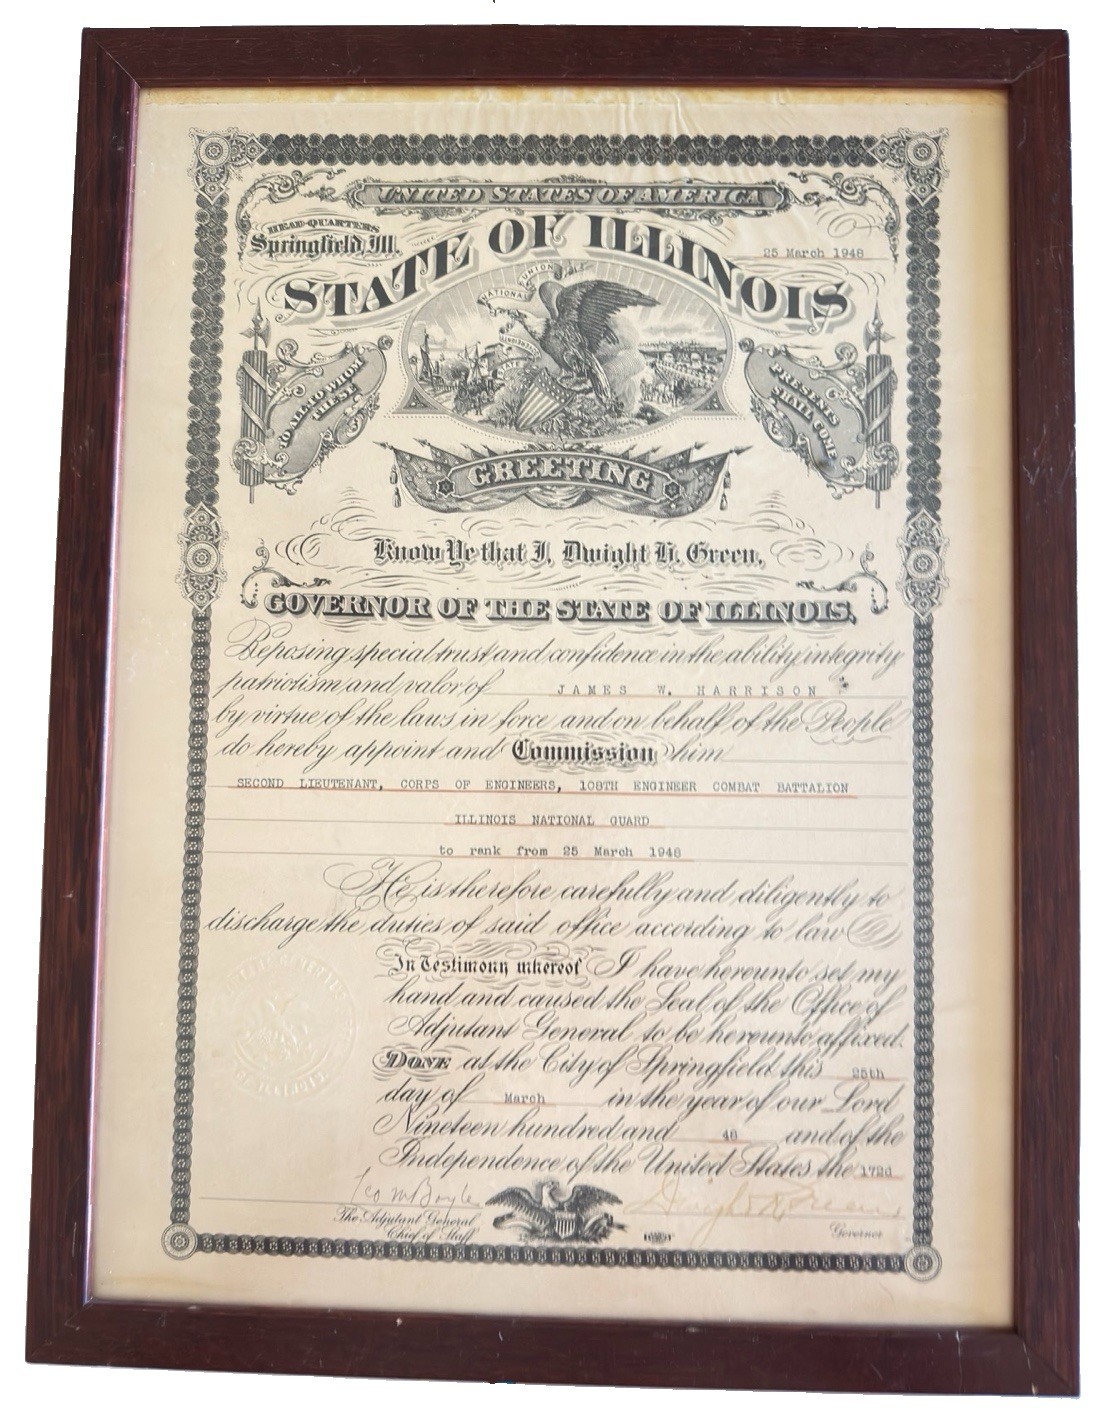 UNITED STATES OF AMERICA
HEAD-QUARTERS
Springfield, Ill.
25 March 1948
STATE OF ILLINOIS
NATIONAL UNION
STATE SOVEREIGNTY
TO ALL TO WHOM
THESE
PRESENTS
SHALL COME
GREETING
Know Ye that I, Dwight H. Green,
GOVERNOR OF THE STATE OF ILLINOIS.
Reposing special trust and confidence in the ability, integrity
patriotism and valor of JAMES W. HARRISON
by virtue of the laws in force and on behalf of the People
do hereby appoint and Commission him
SECOND LIEUTENANT, CORPS OF ENGINEERS, 108TH ENGINEER COMBAT BATTALION
ILLINOIS NATIONAL GUARD
to rank from 25 March 1948
He is therefore carefully and diligently to
discharge the duties of said office according to law
In Testimony whereof I have hereunto set my
hand and caused the Seal of the Office of
Adjutant General to be hereunto affixed.
DONE at the City of Springfield this 25th
day of March in the year of our Lord
Nineteen hundred and 48 and of the
Independence of the United States the 172d
Leo M Boyle
Dwight H Green
The Adjutant General
Chief of Staff
Governor